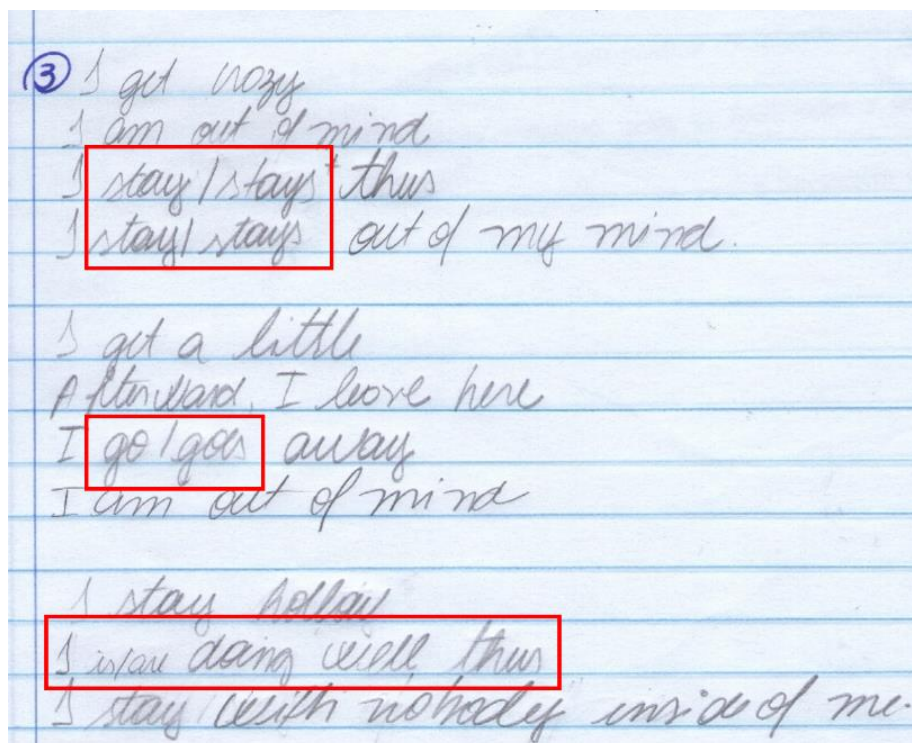 ③ I get crazy
I am out of mind
I stay/stays thus
I stay/stays out of my mind.
I get a little
Afterward, I leave here
I go/goes away
I am out of mind
I stay hollow
I is/are doing well thus
I stay with nobody inside of me.